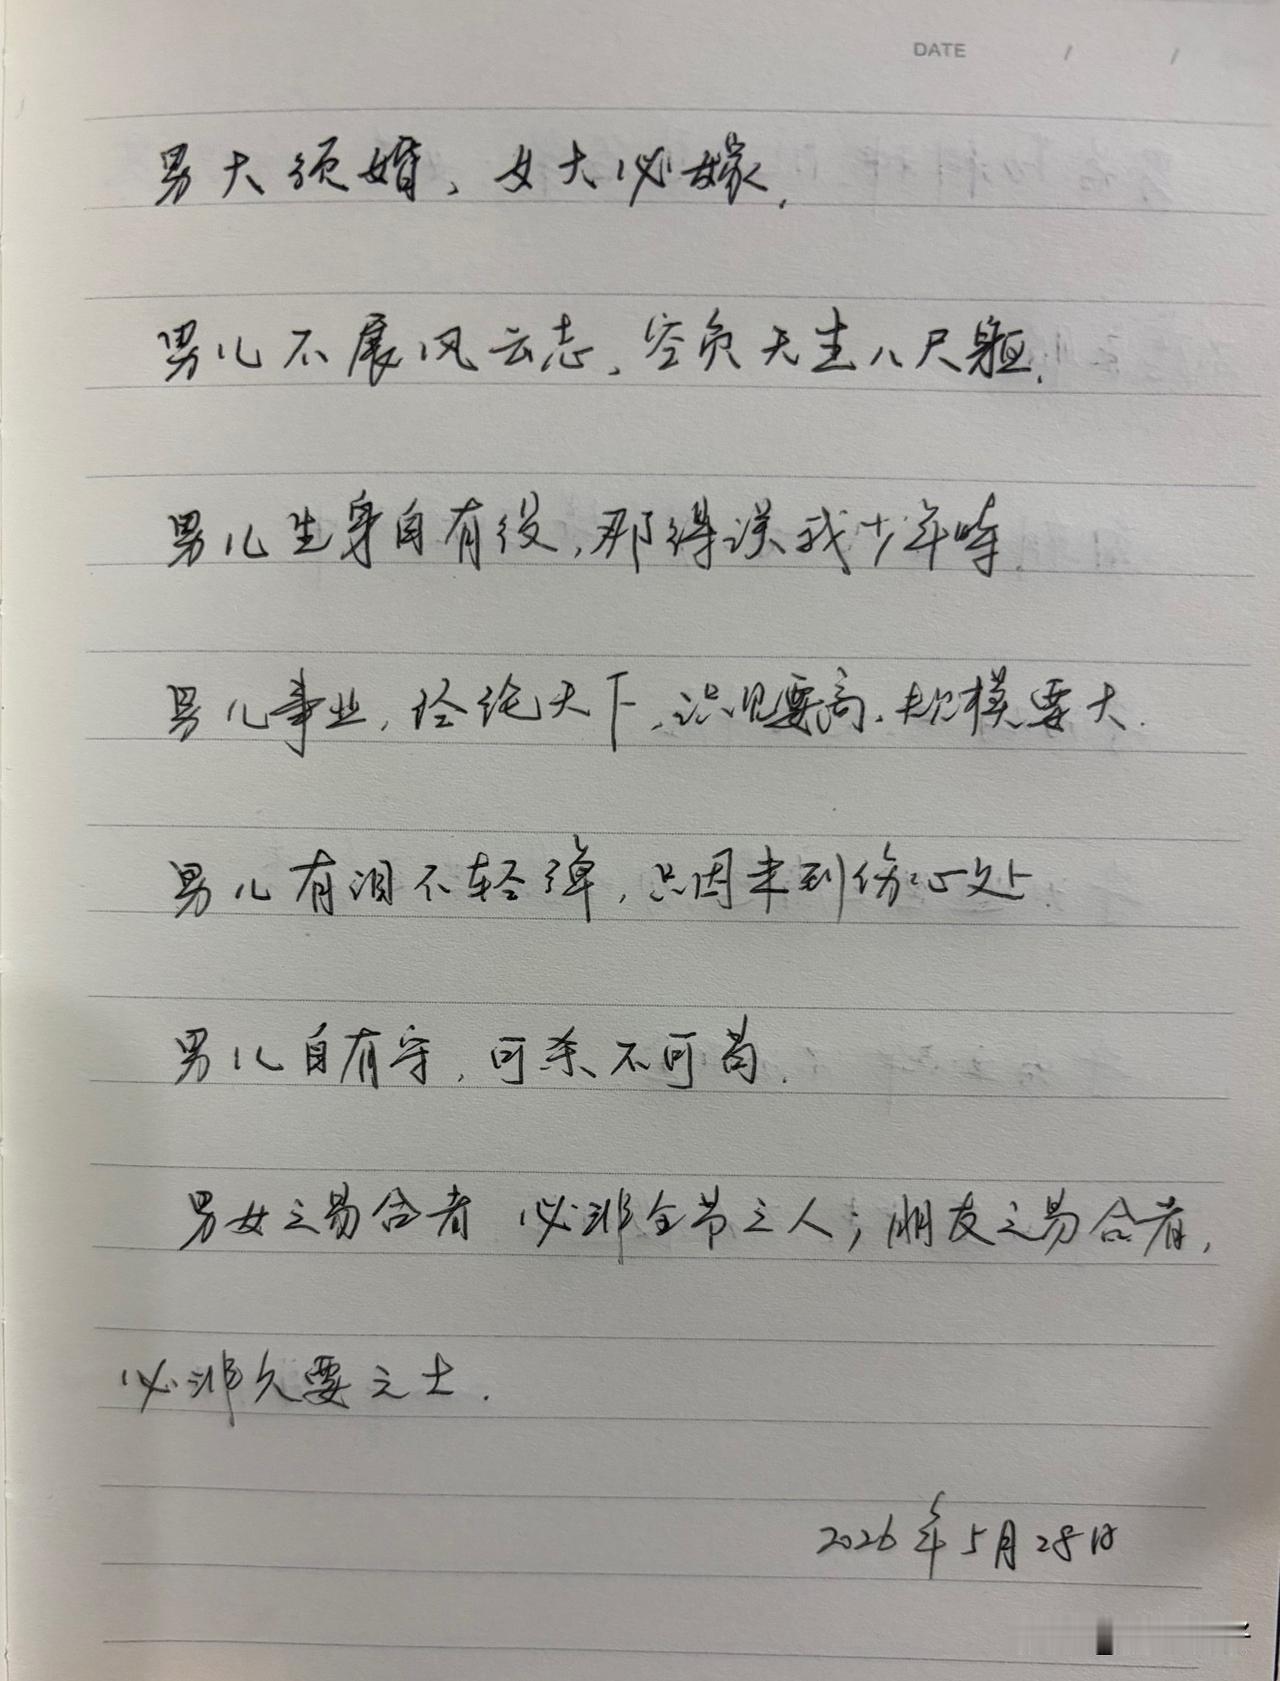 DATE / /
男大须婚、女大必嫁.
男儿不展风云志,空负天生八尺躯.
男儿生身自有役,那得误我少年时.
男儿事业,经纶天下,识见要高,规模要大.
男儿有泪不轻弹,只因未到伤心处.
男儿自有守,可杀不可苟.
男女之易合者 必非全节之人;朋友之易合者,
必非久要之士.
2026年5月28日